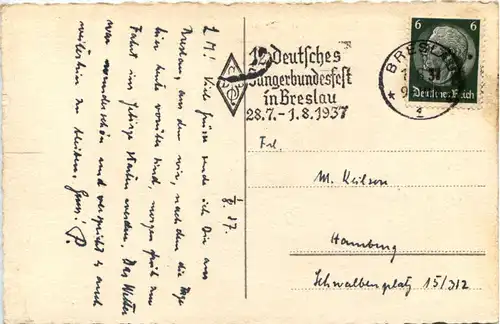 L. M! Viele Grüsse sende ich Dir aus
Breslau, aus dem wir, nachdem die Tage
hier heute vorüber sind, morgen früh zur
Fahrt ins Gebirge starten werden. Das Wetter
war wunderschön und verspricht es auch
weiterhin zu bleiben. Gruss! P.
1/8. 37.
12. Deutsches
Sängerbundesfest
in Breslau
28.7.-1.8.1937
BRESLAU
6 6
Deutsches Reich
Frl.
M. Keilson
Hamburg
Schwalbenplatz 15/312